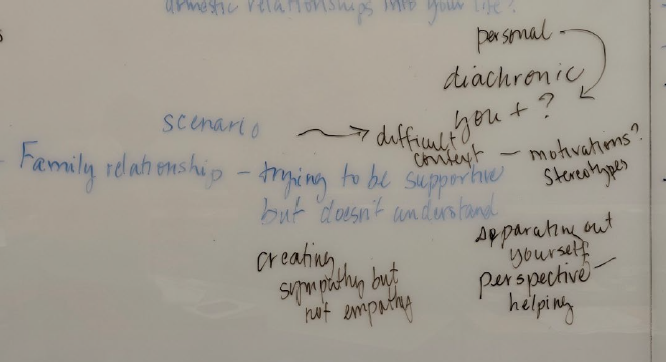 domestic relationships into your life?
personal
diachronic
you + ?
scenario
difficult
context - motivations?
stereotypes
- Family relationship - trying to be supportive
but doesn't understand
creating
sympathy but
not empathy
apparating out
yourself
perspective -
helping